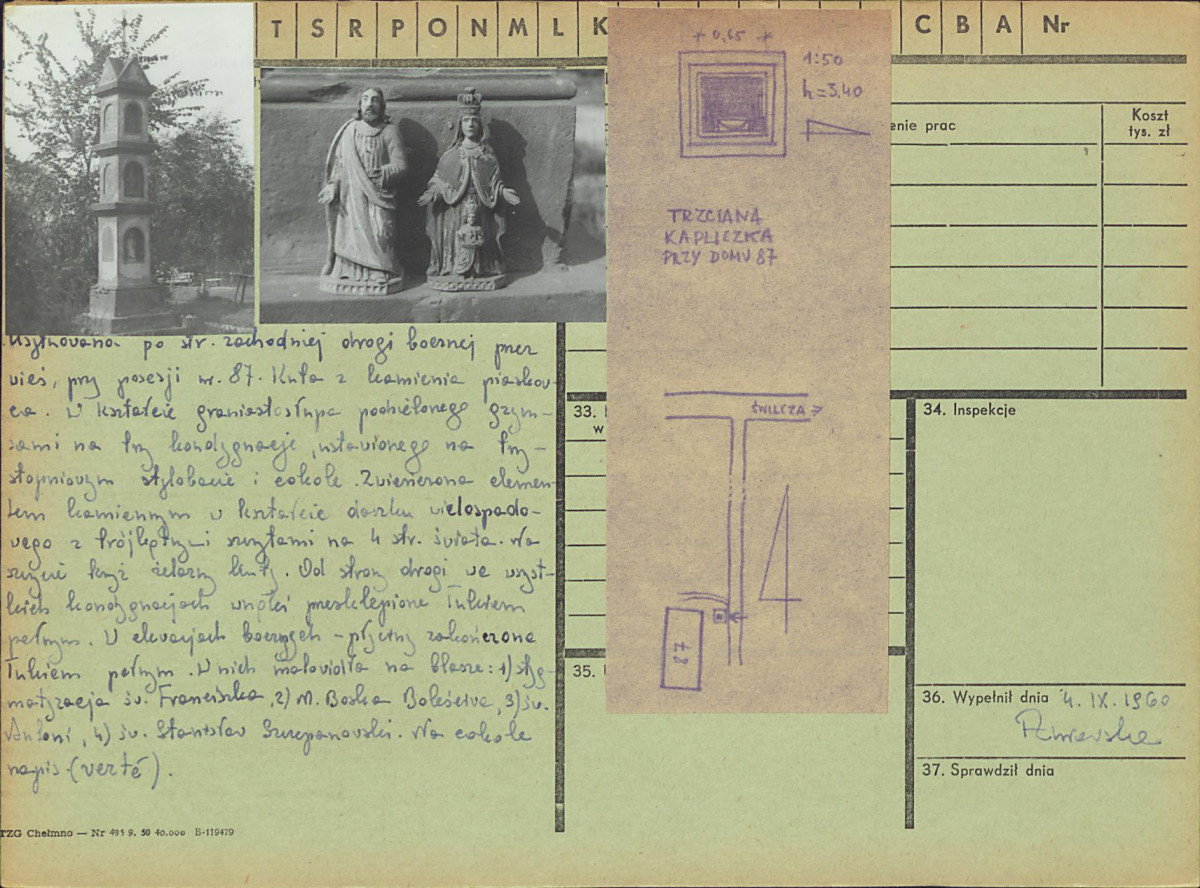 T S R P O N M L K C B A Nr
enie prac
Koszt
tys. zł
0,65
1:50
h=3,40
TRZCIANA
KAPLICZKA
PRZY DOMU 87
ŚWILCZA
87
Usytuowana po str. zachodniej drogi bocznej przez
wieś, przy posesji nr. 87. Kuta z kamienia piaskow-
ca. W kształcie graniastosłupa podzielonego gzym-
sami na trzy kondygnacje, ustawionego na trzy-
stopniowym stylobacie i cokole. Zwieńczona elemen-
tem kamiennym w kształcie daszku wielospado-
wego z trójkątnymi szczytami na 4 str. świata. Na
szczycie krzyż żelazny kuty. Od strony drogi we wszyst-
kich kondygnacjach wnęki przesklepione łukiem
pełnym. W elewacjach bocznych - płyciny zakończone
łukiem pełnym. W nich malowidła na blasze: 1) styg-
matyzacja św. Franciszka, 2) M. Boska Boleściwa, 3) św.
Antoni, 4) św. Stanisław Szczepanowski. Na cokole
napis (verté).
33.
w
34. Inspekcje
35.
36. Wypełnił dnia 4. IX. 1960
37. Sprawdził dnia
TZG Chełmno — Nr 495 9. 50 40.000 B-119479